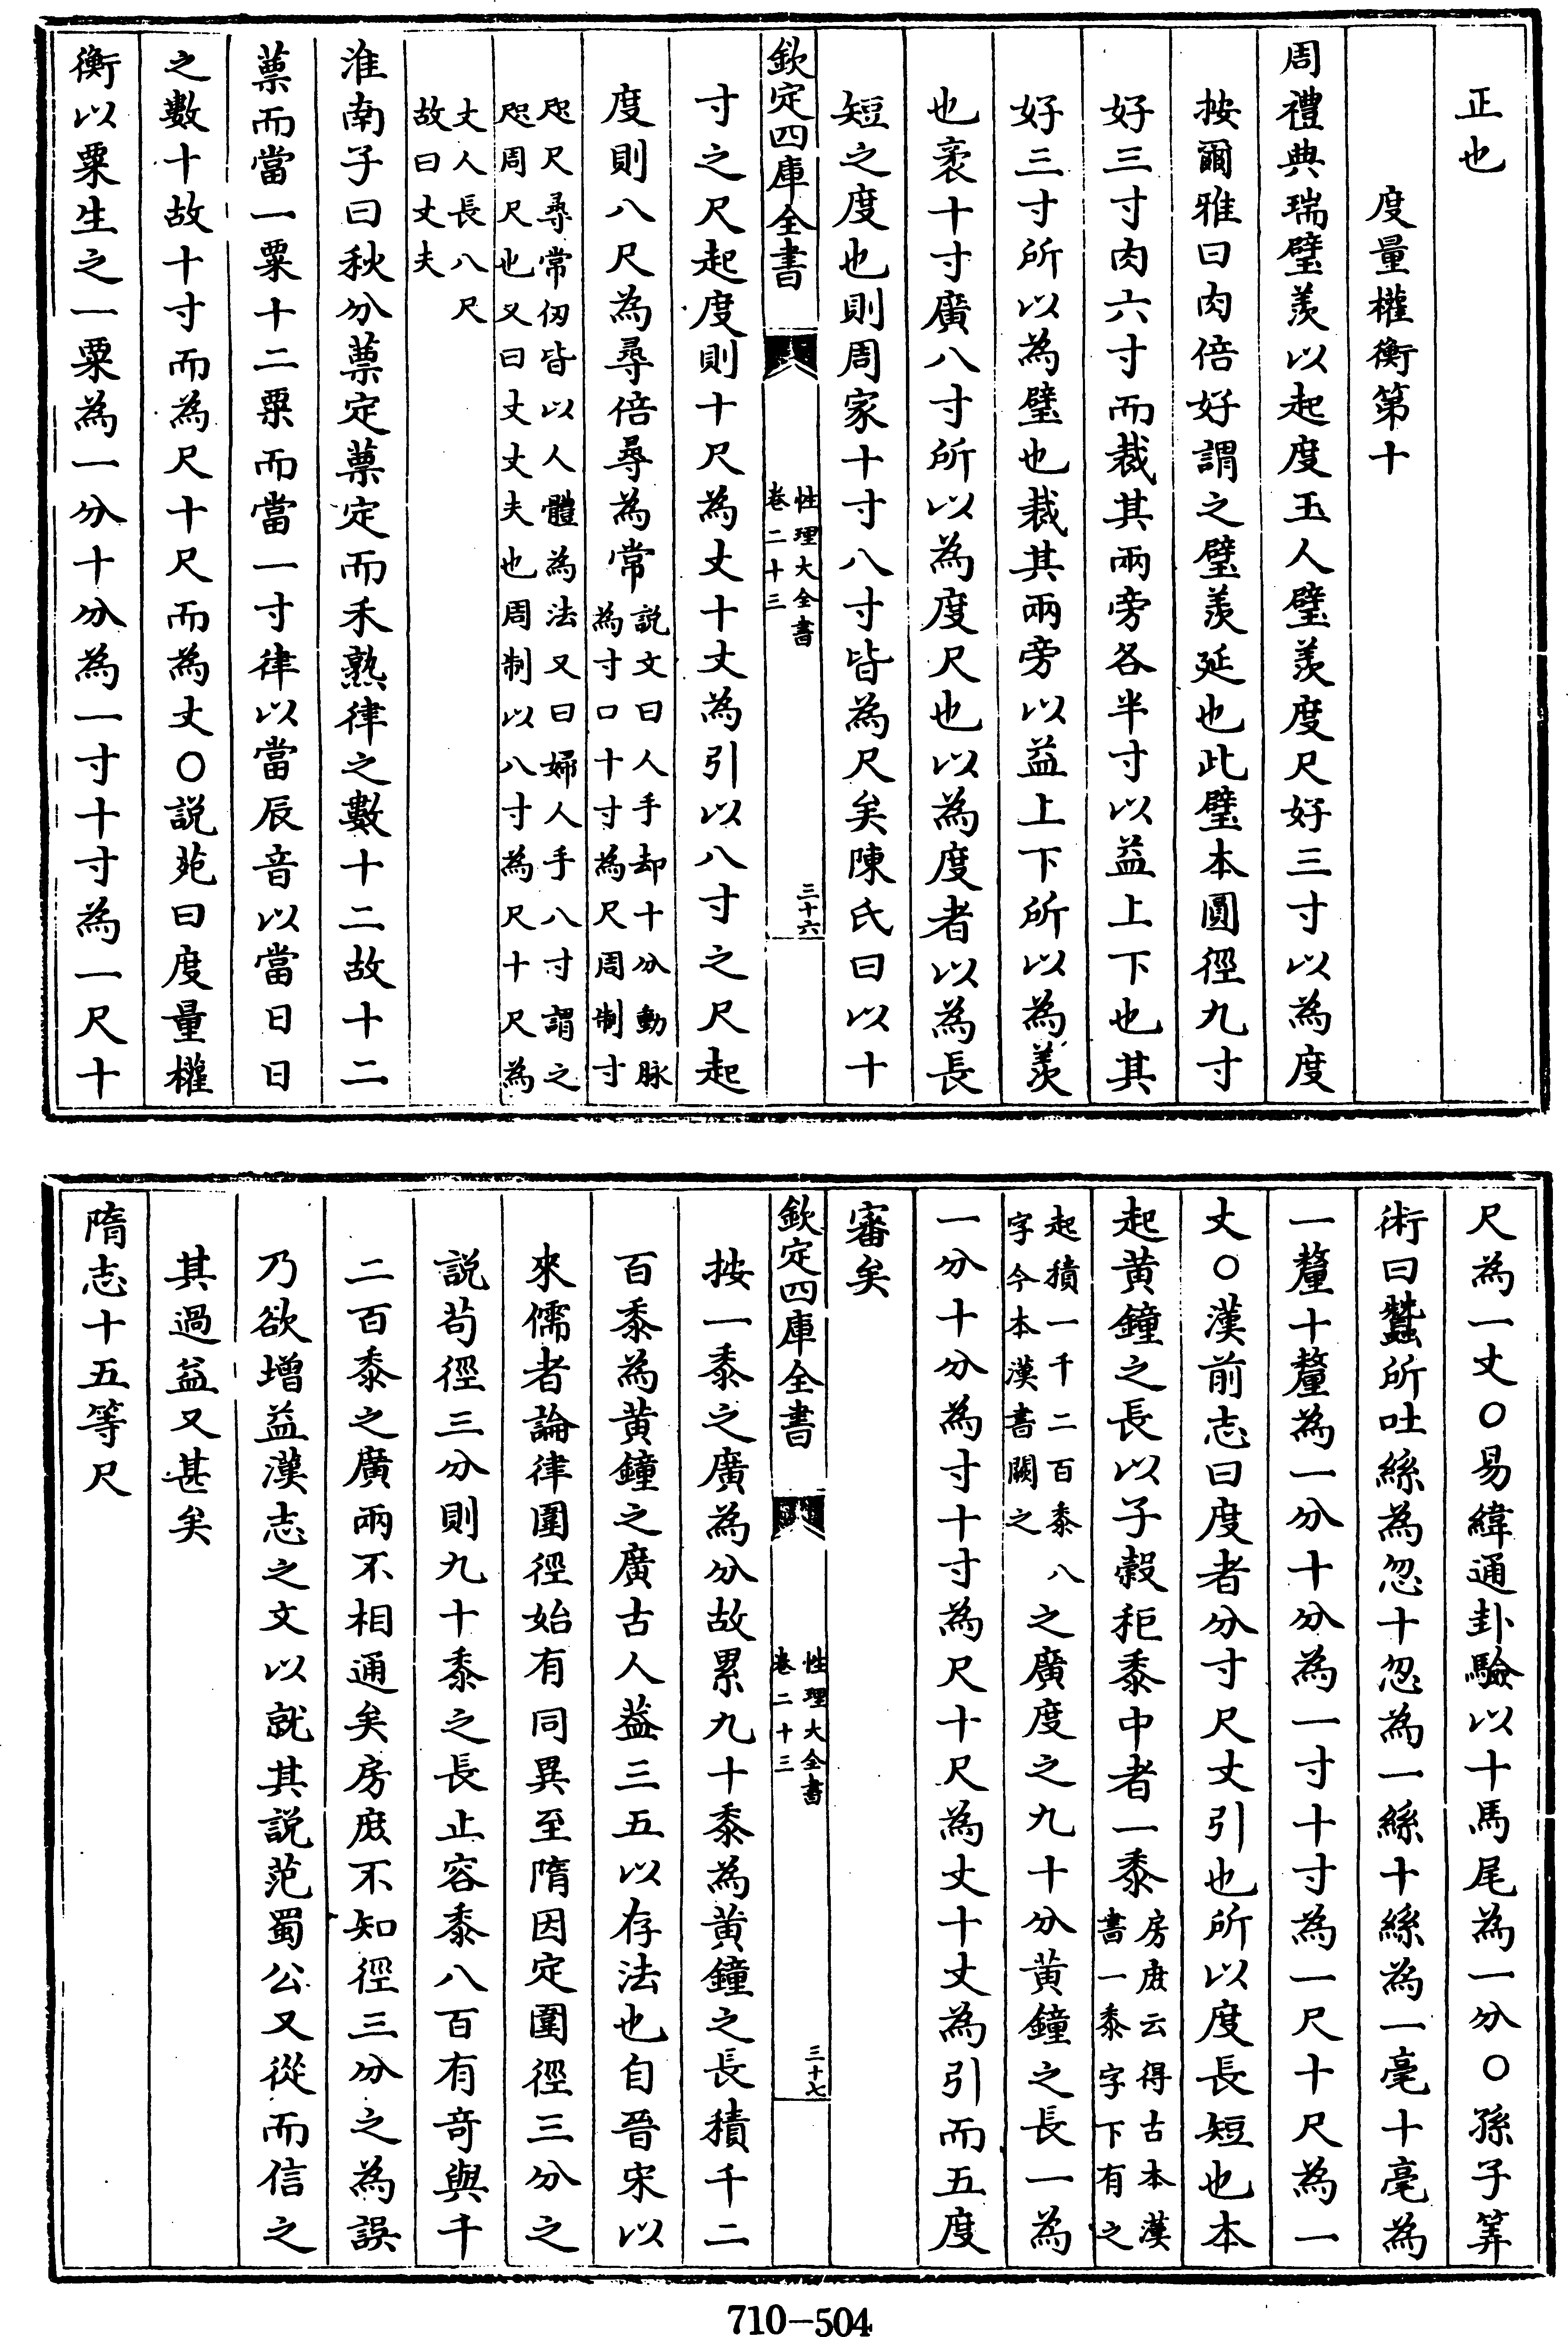 正也
度量權衡第十
周禮典瑞璧羨以起度玉人璧羨度尺好三寸以為度
按爾雅曰肉倍好謂之璧羨延也此璧本圓徑九寸
好三寸肉六寸而裁其兩旁各半寸以益上下也其
好三寸所以為璧也裁其兩旁以益上下所以為羨
也袤十寸廣八寸所以為度尺也以為度者以為長
短之度也則周家十寸八寸皆為尺矣陳氏曰以十
欽定四庫全書
性理大全書
卷二十三
三十六
寸之尺起度則十尺為丈十丈為引以八寸之尺起
度則八尺為尋倍尋為常
説文曰人手却十分動脉
為寸口十寸為尺周制寸
咫尺尋常仞皆以人體為法又曰婦人手八寸謂之
咫周尺也又曰丈丈夫也周制以八寸為尺十尺為
丈人長八尺
故曰丈夫
淮南子曰秋分蔈定蔈定而禾熟律之數十二故十二
蔈而當一粟十二粟而當一寸律以當辰音以當日日
之數十故十寸而為尺十尺而為丈○説苑曰度量權
衡以粟生之一粟為一分十分為一寸十寸為一尺十
尺為一丈○易緯通卦驗以十馬尾為一分○孫子筭
術曰蠶所吐絲為忽十忽為一絲十絲為一毫十毫為
一釐十釐為一分十分為一寸十寸為一尺十尺為一
丈○漢前志曰度者分寸尺丈引也所以度長短也本
起黃鐘之長以子穀秬黍中者一黍
房庶云得古本漢
書一黍字下有之
起積一千二百黍八
字今本漢書闕之
之廣度之九十分黃鐘之長一為
一分十分為寸十寸為尺十尺為丈十丈為引而五度
審矣
欽定四庫全書
性理大全書
卷二十三
三十七
按一黍之廣為分故累九十黍為黃鐘之長積千二
百黍為黃鐘之廣古人葢三五以存法也自晉宋以
來儒者論律圍徑始有同異至隋因定圍徑三分之
説苟徑三分則九十黍之長止容黍八百有竒與千
二百黍之廣兩不相通矣房庶不知徑三分之為誤
乃欲增益漢志之文以就其説范蜀公又從而信之
其過益又甚矣
隋志十五等尺
710-504